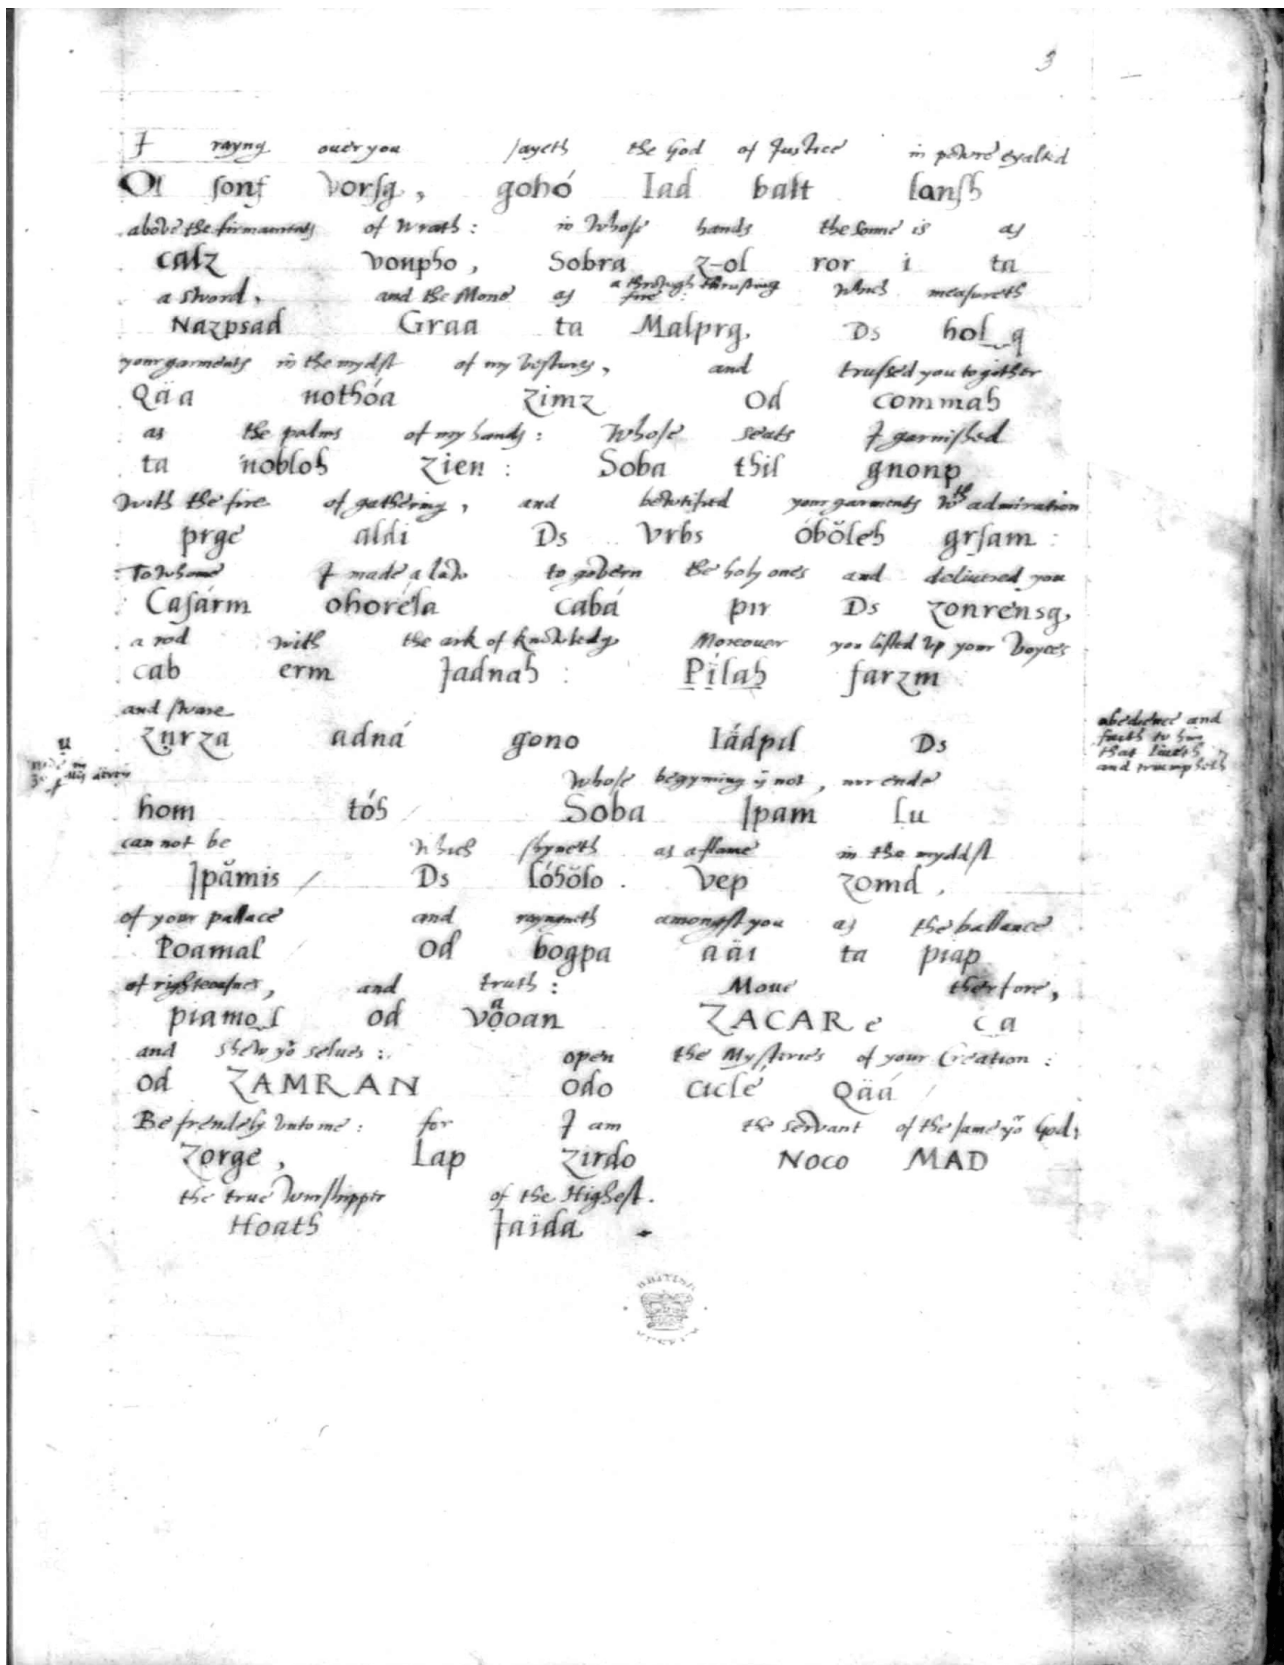 3
I rayng ouer you sayeth the God of Justice in powre exalted
Ol sonf vorsg, gohó Iad balt lansh
above the firmaments of Wrath: in Whose hands the sonne is as
calz vonpho, Sobra z-ol ror i ta
a through thrusting
a sword, and the Mone as fire: Which measureth
Nazpsad Graa ta Malprg, Ds hol_q
your garments in the mydst of my vestures, and trussed you together
Qäa nothóa zimz Od commah
as the palms of my hands: Whose seats I garnished
ta nobloh zien: Soba thil gnonp
with the fire of gathering, and bewtified your garments wth admiration
prge aldi Ds vrbs óbŏleh grsam:
To whome I made a law to govern the holy ones and delivered you
Casárm ohoréla cabá pir Ds zonrensg,
a rod with the ark of knowledg Moreouer you lifted vp your voyces
cab erm Jadnah: Pilah farzm
and sware
obedience and
faith to him
that liueth
and triumpheth
Zurza adná gono Iädpil Ds
u
Whose begynning is not, nor ende
hom tóh Soba Ipam lu
can not be which shyneth as a flame in the myddst
Ipămis / Ds lóhŏlo. vep zomd,
of your pallace and rayngneth amongst you as the ballance
Poamal od bogpa aäi ta piap
of righteousnes, and truth: Moue therfore,
a
piamo_l od vooan ZACARe c_a
and shew yor selues: open the Mysteries of your Creation:
od ZAMRAN odo cicle Qäá
Be frendely vnto me: for I am the servant of the same yor God,
Zorge, Lap zirdo Noco MAD
the true Wurshipper of the Highest.
Hoath Jaïda
BRITISH
MUSEUM